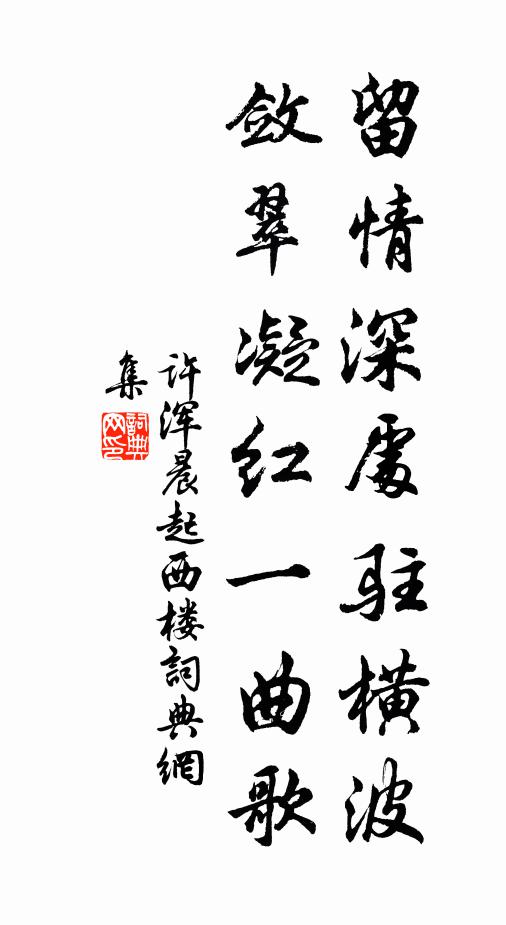 留情深處駐橫波
斂翠凝紅一曲歌
许浑晨起西楼詞典網
集
詞典网印